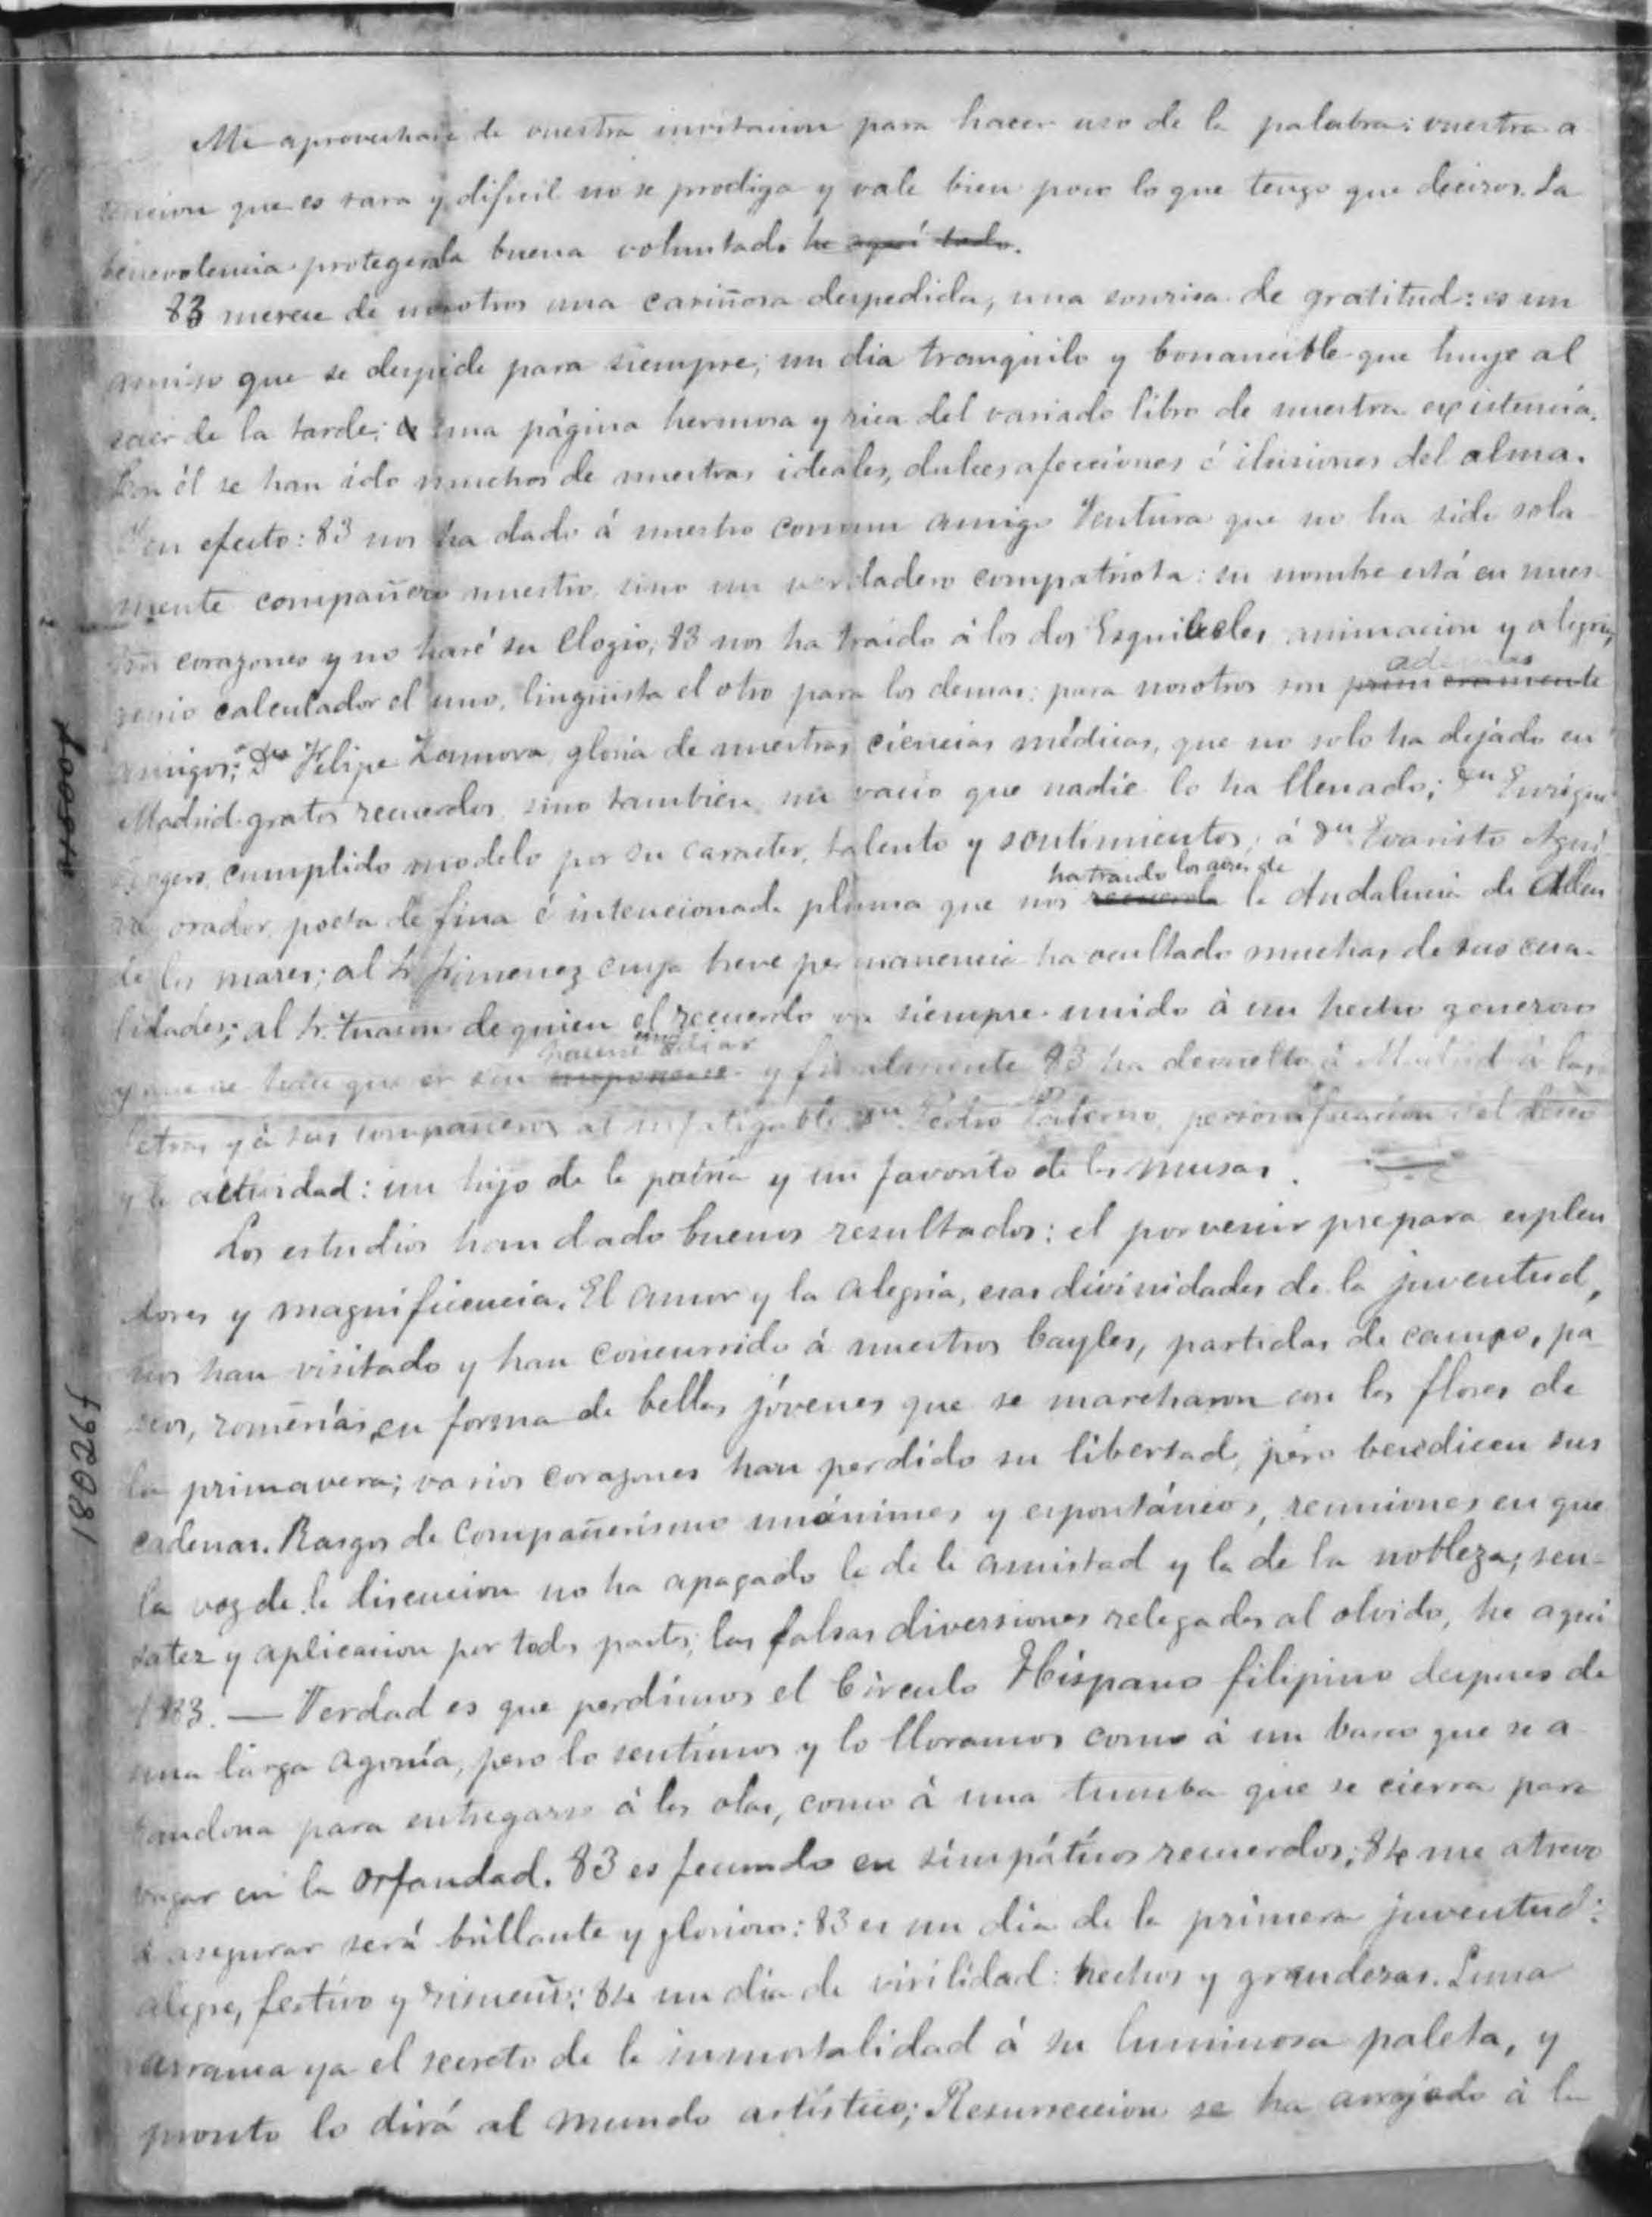 Me aprovechare de vuestra invitacion para hacer uso de la palabra: vuestra a
tencion que es rara y dificil no se prodiga y vale bien poco lo que tengo que deciros. La
benevolencia protegerá la buena voluntad. he aquí todo.
83 merece de nosotros una cariñosa despedida, una sonrisa de gratitud: es un
amigo que se despide para siempre; un dia tranquilo y bonancible que huye al
caer de la tarde; una página hermosa y rica del variado libro de nuestra existencia.
Con él se han ido muchos de nuestras ideales, dulces afecciones é ilusiones del alma.
Y en efecto: 83 nos ha dado á nuestro comun amigo Ventura que no ha sido sola
mente compañero nuestro sino un verdadero compatriota: su nombre está en nues
tros corazones y no haré su elogio; 83 nos ha traido á los dos Esquibeles, animacion y alegria,
genio calculador el uno, lingüista el otro para los demas: para nosotros son primeramente ademas
amigos; á Dn Felipe Zamora, gloria de nuestras ciencias médicas, que no solo ha dejado en
Madrid gratos recuerdos sino tambien un vacio que nadie lo ha llenado; Dn Enrique
Rogers, cumplido modelo por su caracter, talento y sentimientos; á Dn Evaristo Agui
rre orador, poeta de fina é intencionada pluma que nos recuerda ha traido los aires de la Andalucia de allen
de los mares; al Sr. Jimenez cuya breve permanencia ha ocultado muchas de sus cua-
lidades; al Sr. Tuason de quien el recuerdo va siempre unido á un hecho generoso
y finalmente 83 ha devuelto á Madrid á las
letras y á sus compañeros al infatigable Dn Pedro Paterno, personificacion del deseo
y la actividad: un hijo de la patria y un favorito de las musas.
Los estudios han dado buenos resultados: el porvenir prepara esplen
dores y magnificencia. El amor y la alegria, esas divinidades de la juventud,
nos han visitado y han concurrido á nuestros bayles, partidas de campo, pa
seos, romerías, en forma de bellas jóvenes que se marcharon con las flores de
la primavera; varios corazones han perdido su libertad, pero bendicen sus
cadenas. Rasgos de compañerismo unánimes y espontáneos, reuniones en que
la voz de la discusion no ha apagado la de la amistad y la de la nobleza; sen-
satez y aplicacion por todas partes; las falsas diversiones relegadas al olvido, he aqui
1883. — Verdad es que perdimos el Círculo Hispano filipino despues de
una larga agonía, pero lo sentimos y lo lloramos como á un barco que se a
bandona para entregarse á las olas, como á una tumba que se cierra para
vagar en la orfandad. 83 es fecundo en simpáticos recuerdos; 84 me atrevo
á asegurar será brillante y glorioso: 83 es un dia de la primera juventud:
alegre, festivo y risueño; 84 un dia de virilidad: hechos y grandezas. Luna
arranca ya el secreto de la inmortalidad á su luminosa paleta, y
pronto lo dirá al mundo artístico; Resurreccion se ha arrojado á la
18026f